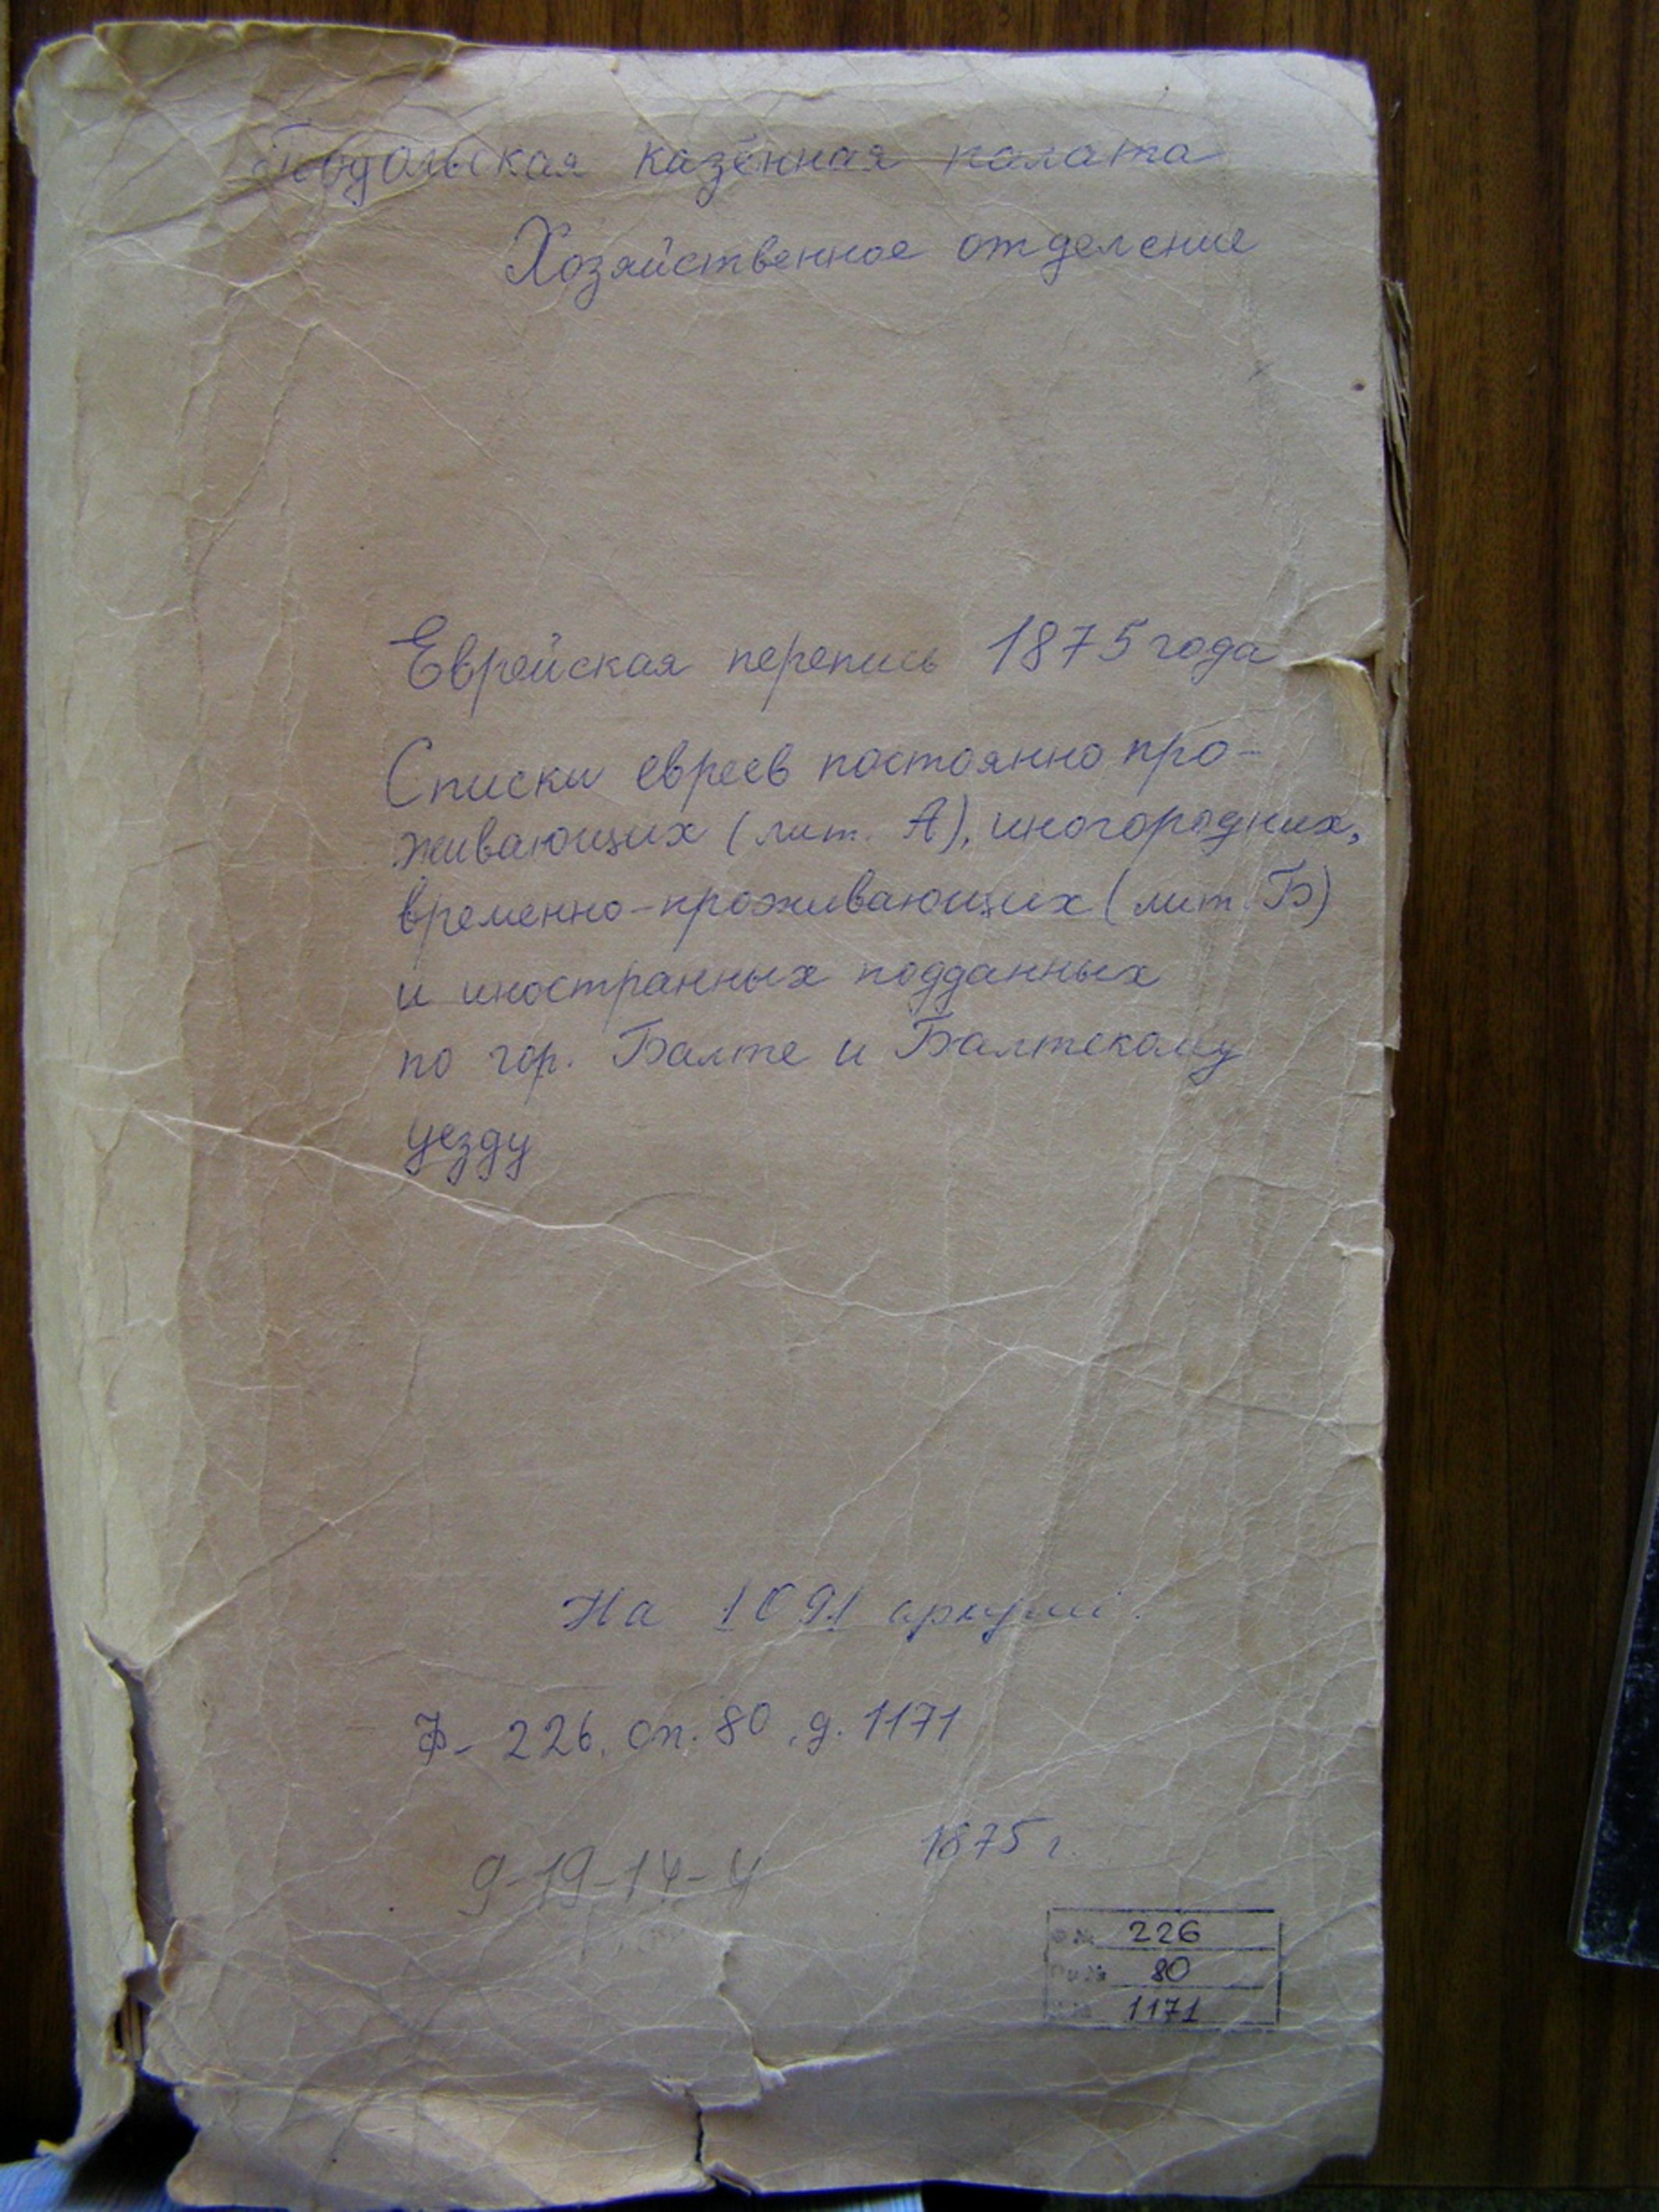 Подольская казённая палата
Хозяйственное отделение
Еврейская перепись 1875 года
Списки евреев постоянно про-
живающих (лит. А), иногородних,
временно-проживающих (лит. Б)
и иностранных подданных
по гор. Балте и Балтскому
уезду
На 1091 аркуші.
Ф- 226, оп. 80, д. 1171
1875 г.
9-19-14-4
Ф № 226
Оп № 80
1171